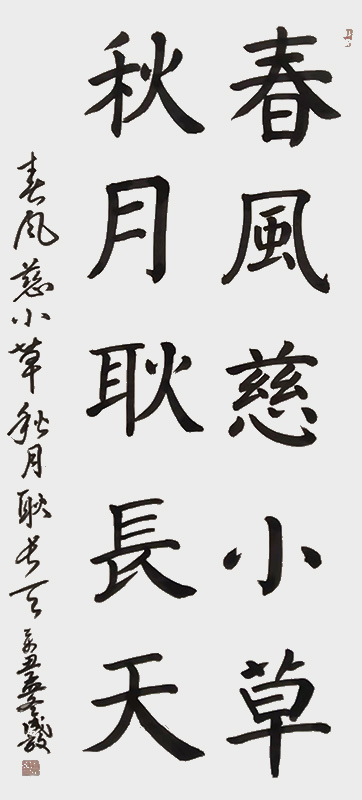 春風慈小草
秋月耿長天
春风慈小草秋月耿长天
辛丑孟冬